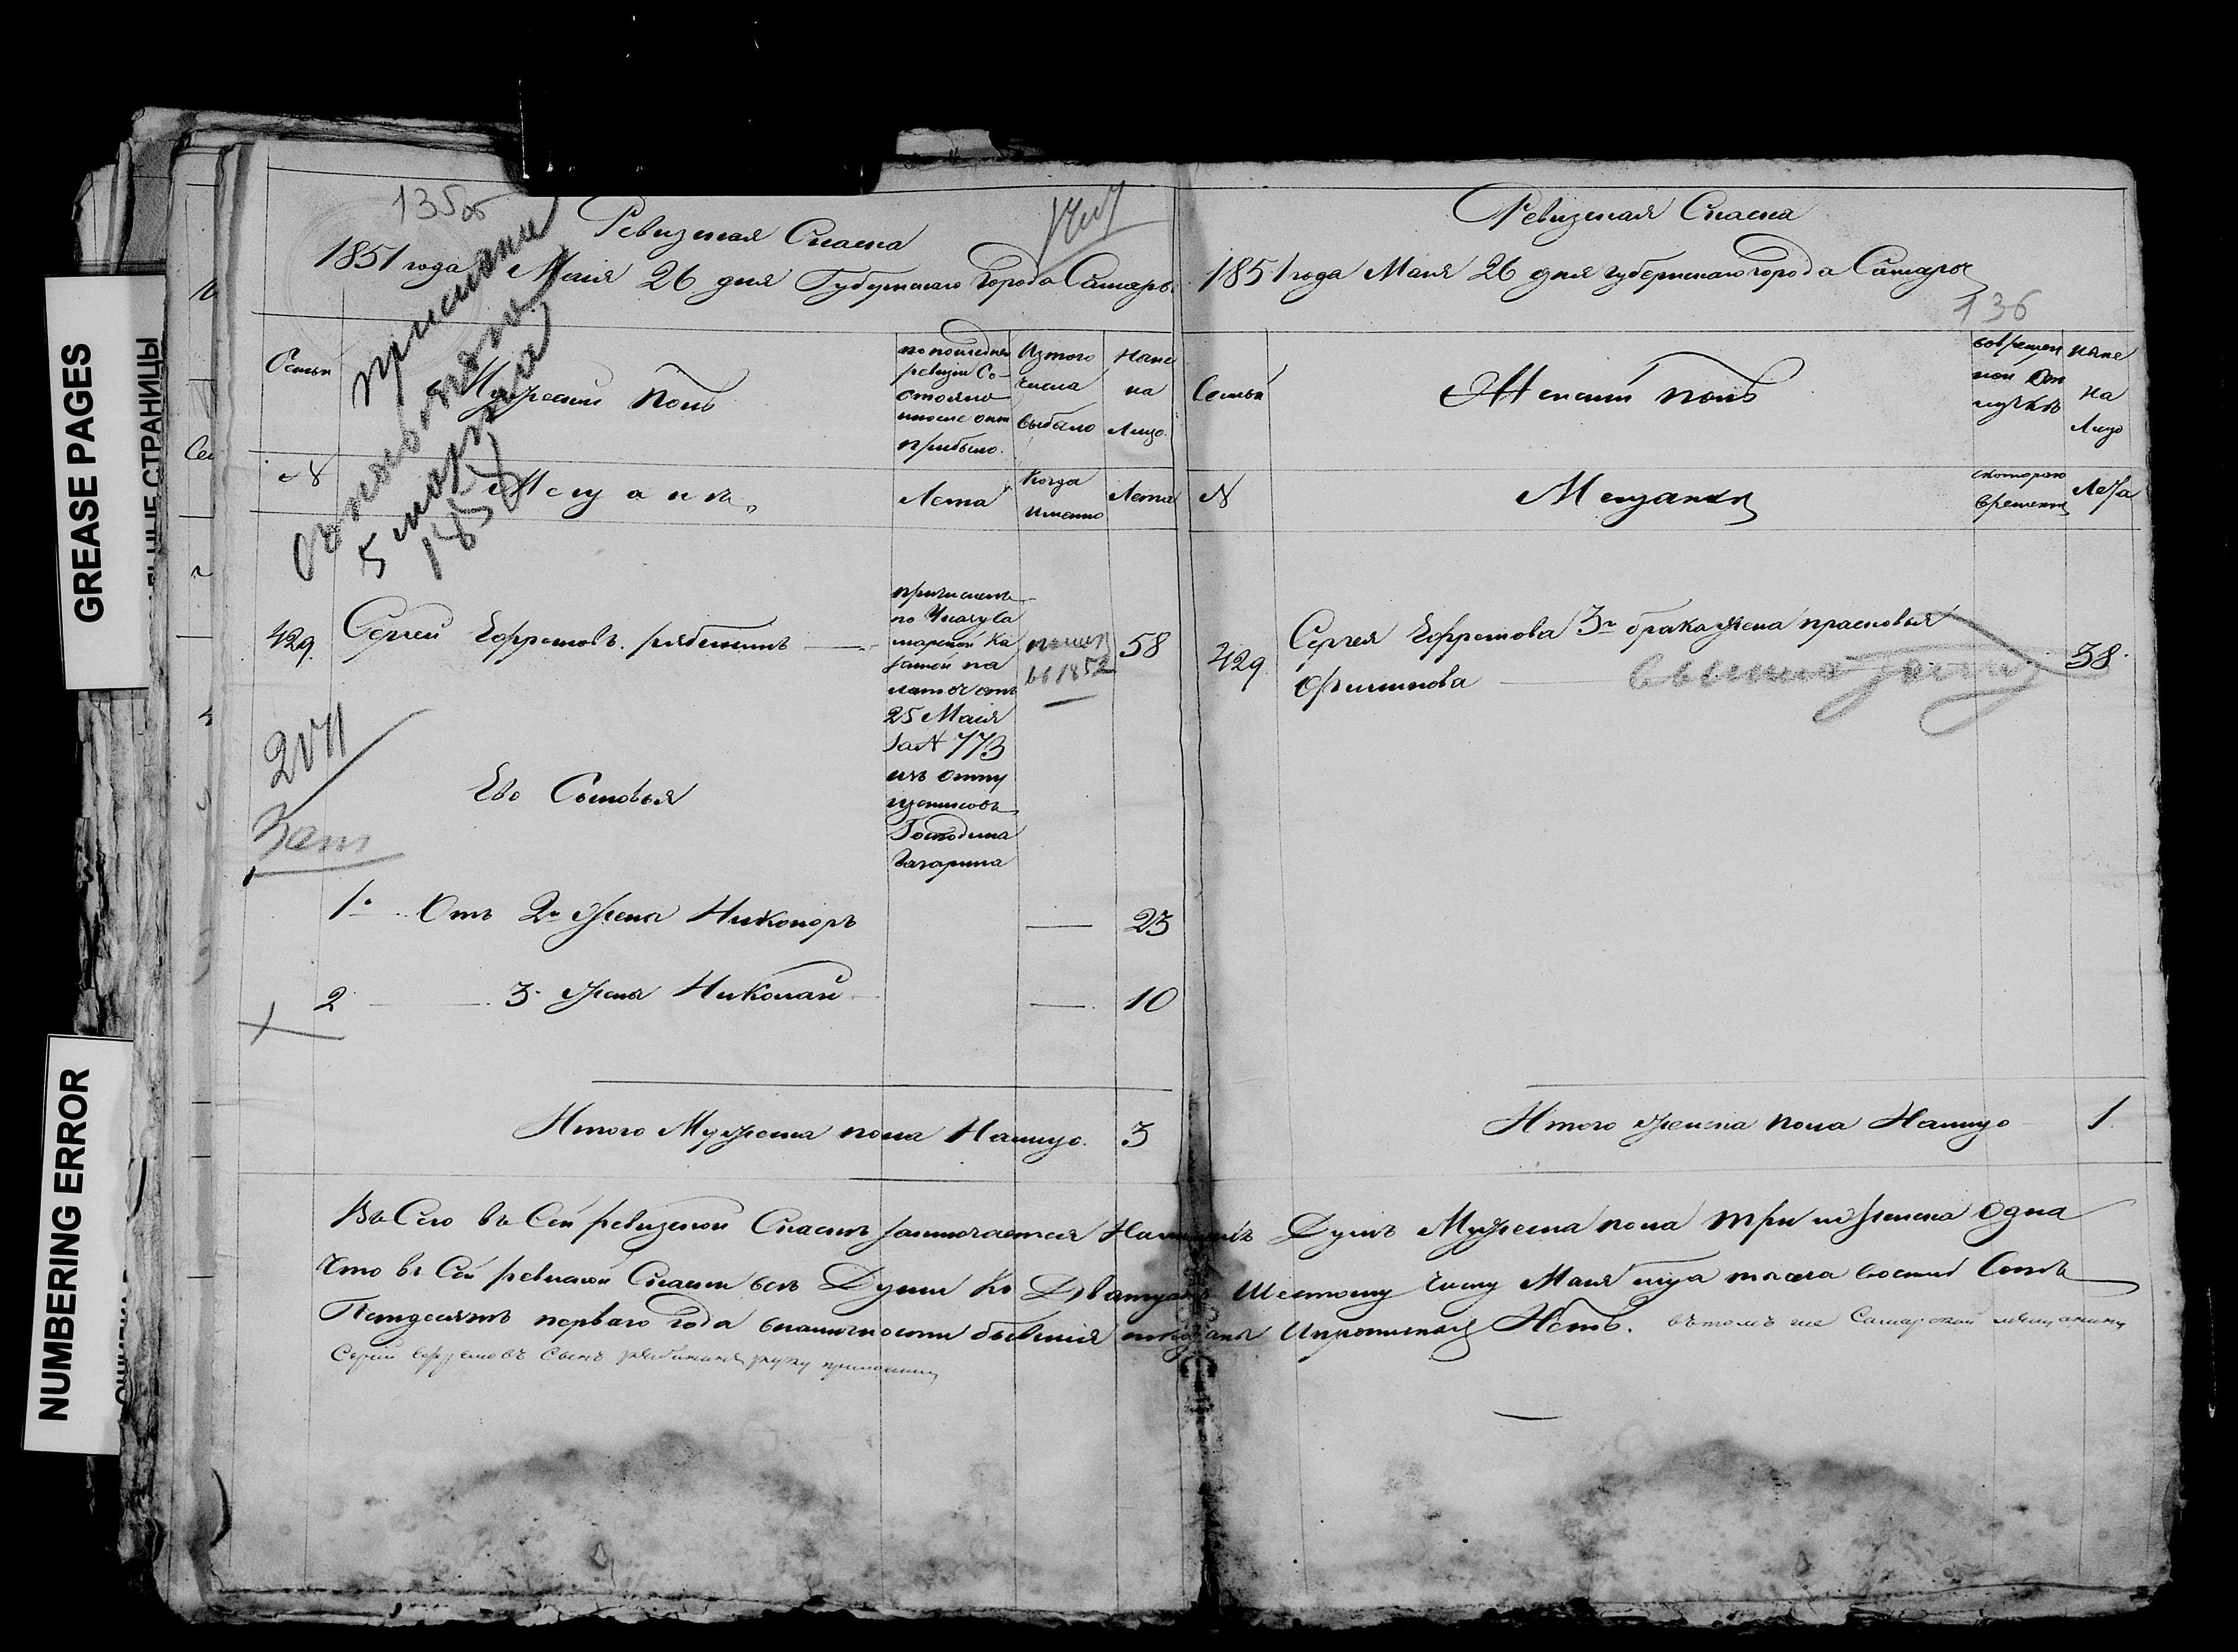 GREASE PAGES
НЫЕ СТРАНИЦЫ
NUMBERING ERROR
135 об
Ревизская Сказка
1851 года Маія 26 дня Губернскаго Города Самары
5 марта
Семьи
Мужеский полъ
по последней
ревизии Со-
стояло
и после онй
прибыло.
Из того
числа
выбыло
Ныне
на
Лицо.
№
Мещанъ
Лета
Когда
именно
Лета
429.
Сергей Ефремовъ. рябининъ
причисленъ
по Указу Са
марской Ка
занной па
латы отъ
25 Маія
за № 773
изъ отпу
щенниковъ
Господина
58
Ево Сыновья
1.е Отъ 2й жены Никоноръ — 23
2 — 3. жены Николай — 10
Итого Мужеска пола Налицо. 3
Ревизская Сказка
1851 года Маия 26 дня губернскаго города Самары
136
Семьи
Женский полъ
во времен
ной От
лучке
Ныне
на
Лицо
№
Мещанки
с котораго
времени
Лета
429
Сергея Ефремова 3го брака жена прасковья
Филипова
38
Итого женска пола Налицо 1
Въ Сего въ Сей ревизской Сказке заключается Налицо Душъ Мужеска пола три и женска Одна
Что въ Сей ревизской Сказки все Души Ко Двадцать Шестому Числу Маия тысяча восемь Сотъ
Петдесятъ перваго Года в наличности бывшия показаны И прописныхъ Нетъ. въ томъ же Самарской мещанинъ
Сергий ефремовъ Сынъ рябининъ руку приложилъ